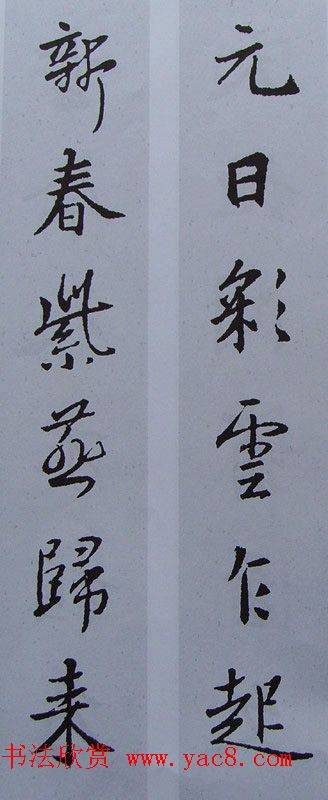 元日彩雲乍起
新春紫燕歸来
书法欣赏 www.yac8.com